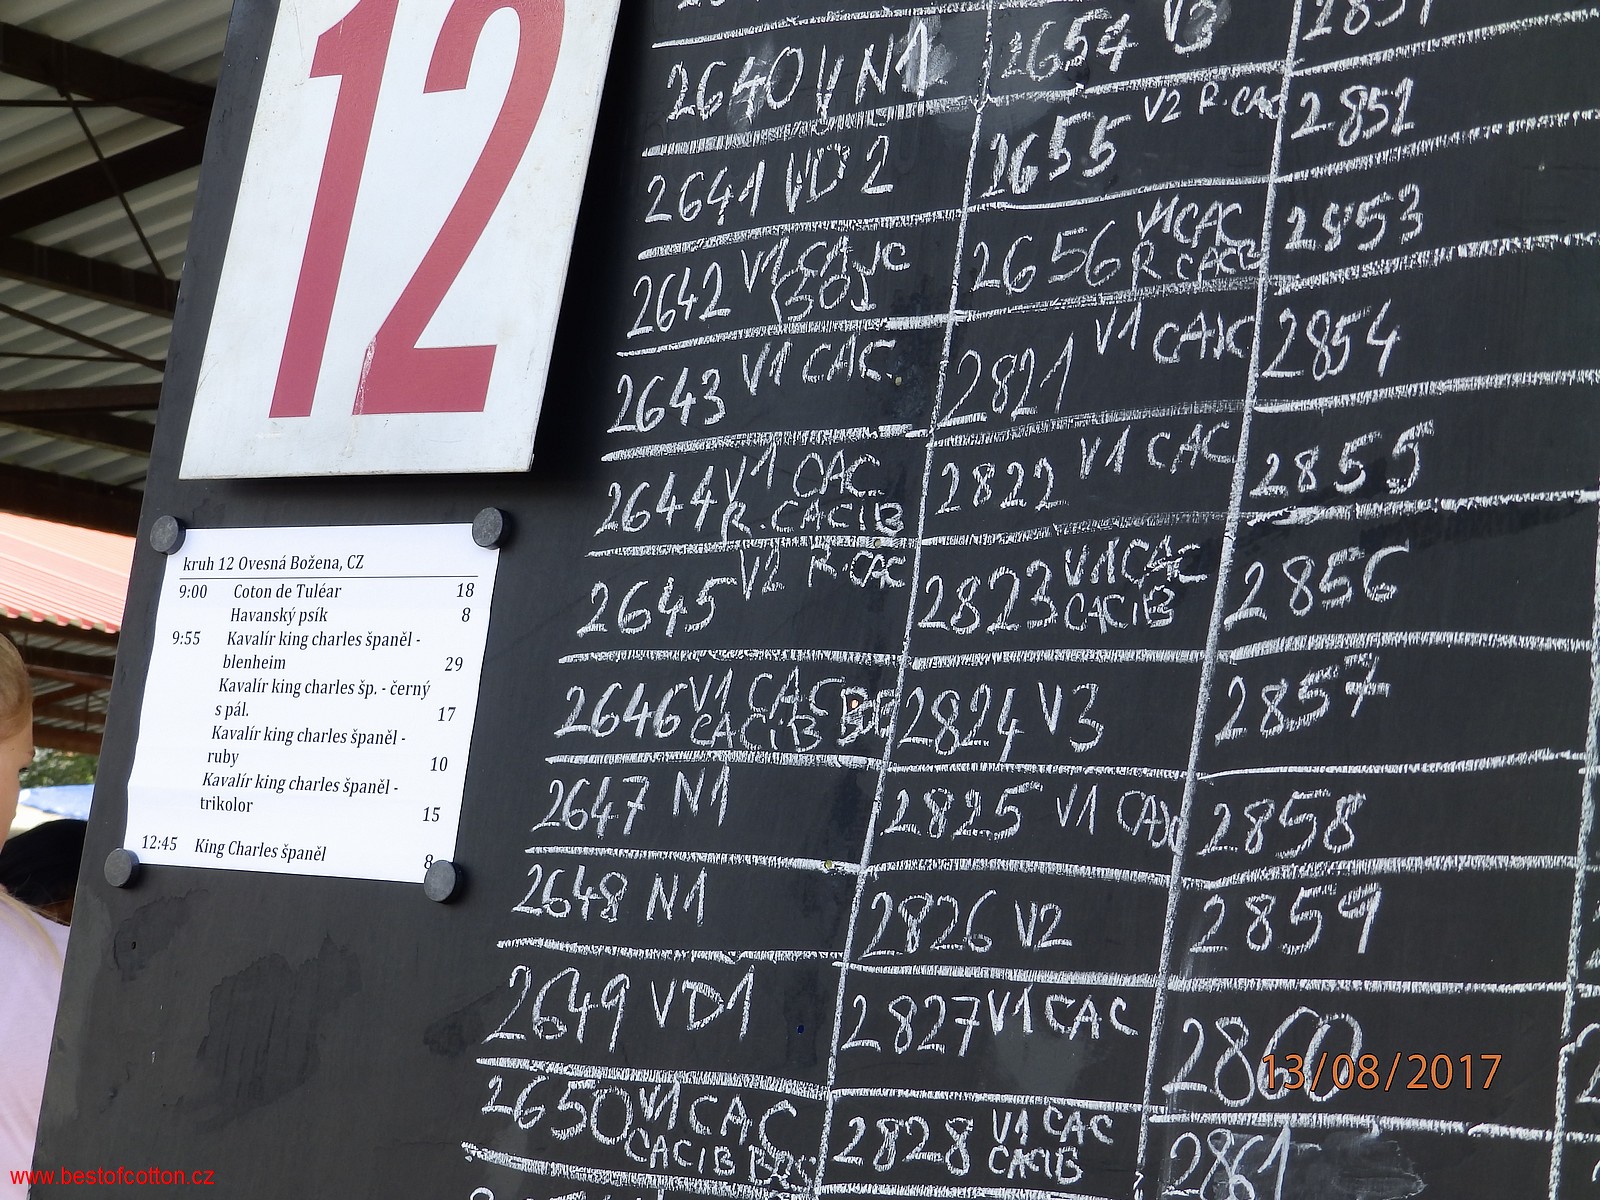 12
kruh 12 Ovesná Božena, CZ
9:00 Coton de Tuléar 18
Havanský psík 8
9:55 Kavalír king charles španěl -
blenheim 29
Kavalír king charles šp. - černý
s pál. 17
Kavalír king charles španěl -
ruby 10
Kavalír king charles španěl -
trikolor 15
12:45 King Charles španěl 8
2640 V N1
2641 VD 2
2642 V1 CAJC
BOJ
2643 V1 CAC
2644 V1 CAC
R.CACIB
2645 V2 R.CAC
2646 V1 CAC
CACIB
2647 N1
2648 N1
2649 VD1
2650 V1 CAC
CACIB BOS
2654 V3
2655 V2 R.CAC
2656 V1 CAC
R CACIB
2821 V1 CAJC
2822 V1 CAC
2823 V1 CAC
CACIB
2824 V3
2825 V1
2826 V2
2827 V1 CAC
2828 V1 CAC
CACIB
2853
2854
2855
2856
2857
2858
2859
2860
2861
13/08/2017
www.bestofcotton.cz